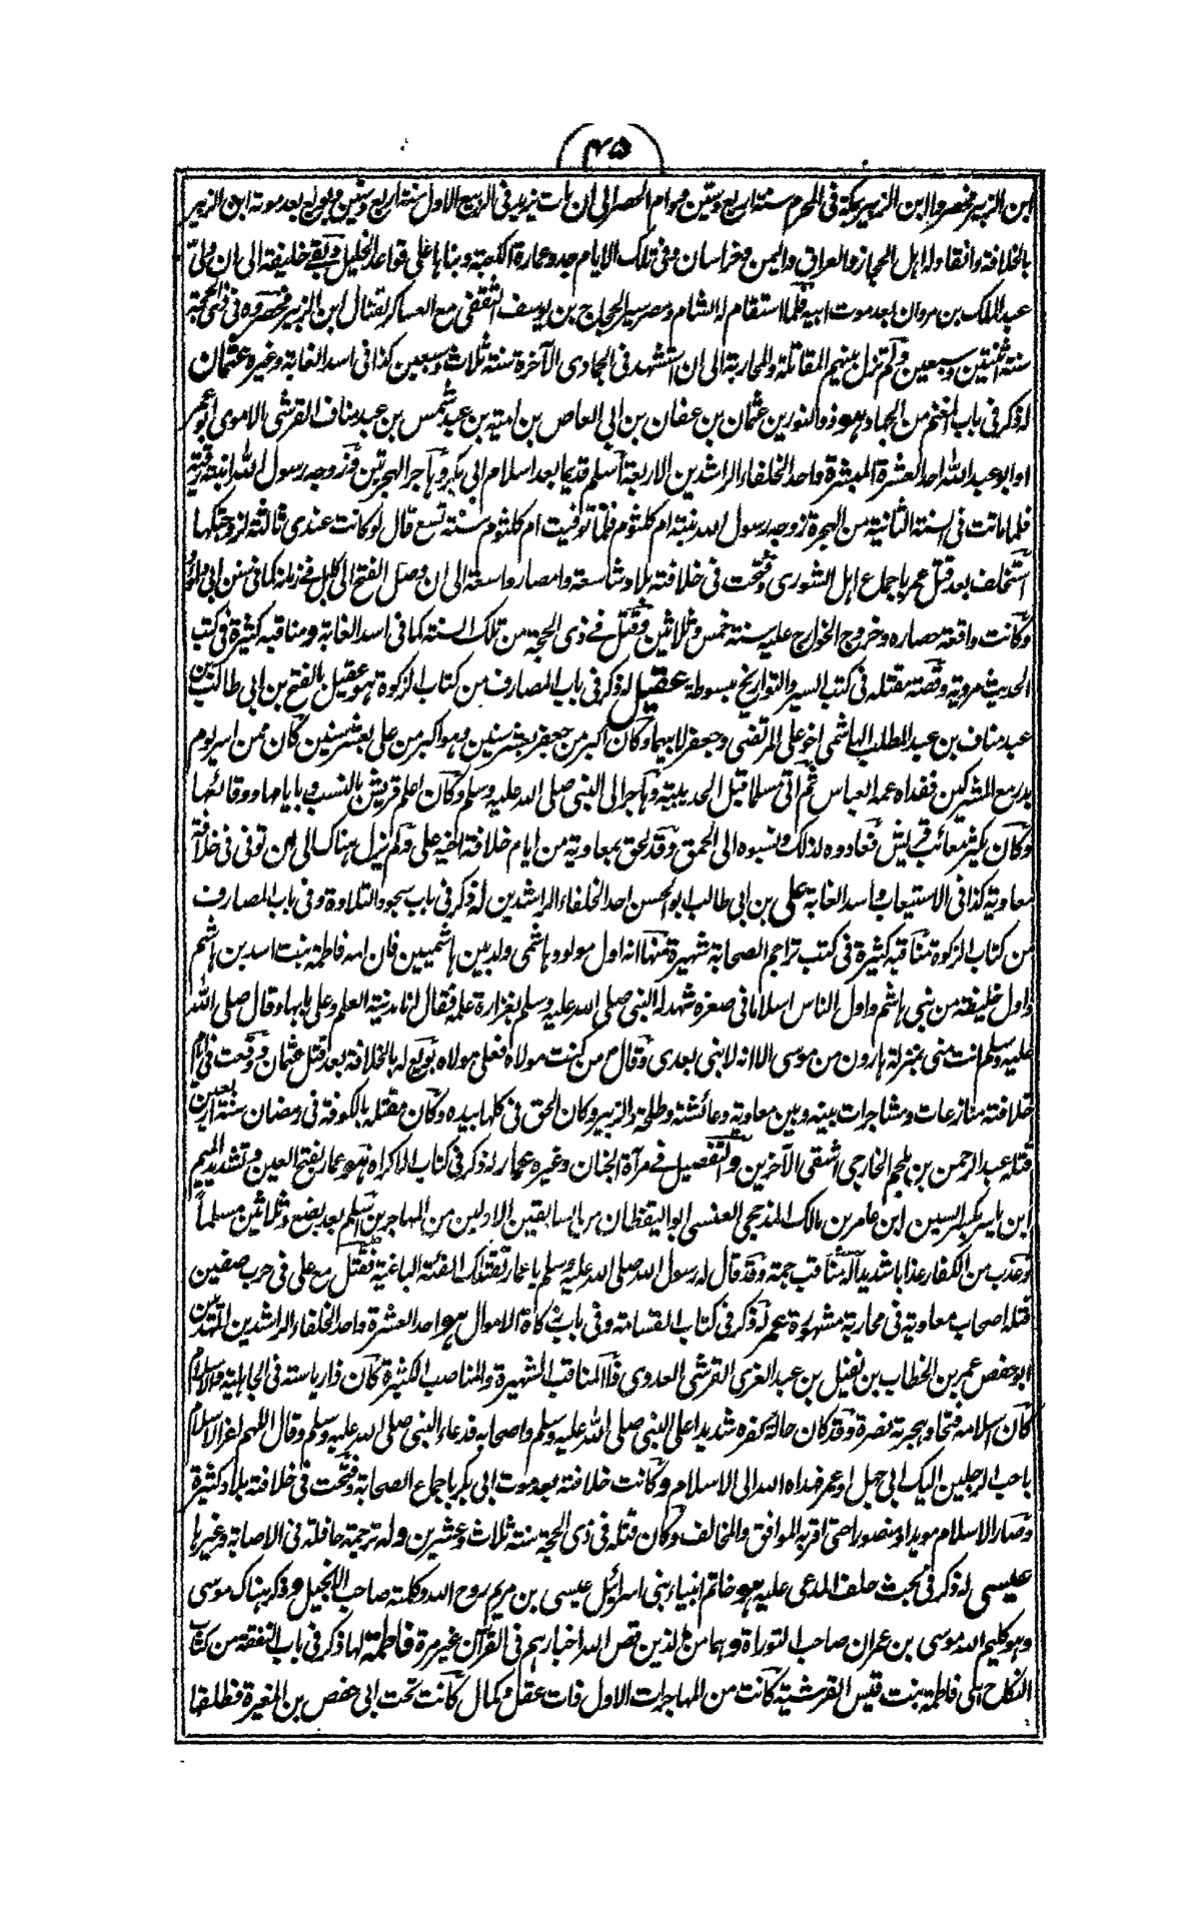 ۴۵
ابن الزبير فحصروا ابن الزبير بمكة في المحرم سنة اربع وستين ودام الحصر الى ان مات يزيد في الربيع الاول سنة اربع وستين وبويع بعد موته ابن الزبير
بالخلافة وانقاد له اهل الحجاز والعراق واليمن وخراسان وفي تلك الايام جدد عمارة الكعبة وبناها على قواعد الخليل وبقي خليفة الى ان ولي
عبد الملك بن مروان بعد موت ابيه فلما استقام له الشام ومصر سير الحجاج بن يوسف الثقفي مع العساكر لقتال ابن الزبير فحصروه في ذي الحجة
سنة اثنتين وسبعين ولم تزل بينهم المقاتلة والمحاربة الى ان استشهد في الجمادى الآخرة سنة ثلاث وسبعين كذا في اسد الغابة وغيره عثمان
له ذكر في باب الغنم من الجهاد هو ذو النورين عثمان بن عفان بن ابي العاص بن امية بن عبد شمس بن عبد مناف القرشي الاموي ابو عمر
او ابو عبد الله احد العشرة المبشرة واحد الخلفاء الراشدين الاربعة اسلم قديما بعد اسلام ابي بكر وهاجر الهجرتين وزوجه رسول الله ابنته رقية
فلما ماتت في السنة الثانية من الهجرة زوجه رسول الله بنته ام كلثوم فلما توفيت ام كلثوم سنة تسع قال لو كانت عندي ثالثة لزوجتكها
استخلف بعد قتل عمر باجماع اهل الشورى وفتحت في خلافته بلاد شاسعة وامصار واسعة الى ان وصل الفتح الى كابل في زمانه كما في سنن ابي داود
وكانت واقعة حصاره وخروج الخوارج عليه سنة خمس وثلاثين وقتل في ذي الحجة من تلك السنة كما في اسد الغابة ومناقبه كثيرة في كتب
الحديث مروية وقصة مقتله في كتب السير والتواريخ مبسوطة عقيل له ذكر في باب المصارف من كتاب الزكوة هو عقيل بالفتح بن ابي طالب بن
عبد مناف بن عبد المطلب الهاشمي اخو علي المرتضى وجعفر لابيهما وكان اكبر من جعفر بعشر سنين وهو اكبر من علي بعشر سنين كان ممن اسر يوم
بدر مع المشركين ففداه عمه العباس ثم اتى مسلما قبل الحديبية وهاجر الى النبي صلى الله عليه وسلم وكان اعلم قريش بالنسب وبايامها ووقائعها
وكان يكثر معائب قريش فعادوه لذلك ونسبوه الى الحمق وقد لحق بمعاوية من ايام خلافة اخيه علي ولم يزل هناك الى ان توفي في خلافة
معاوية كذا في الاستيعاب واسد الغابة علي بن ابي طالب ابو الحسن احد الخلفاء الراشدين له ذكر في باب سجود التلاوة وفي باب المصارف
من كتاب الزكوة مناقبه كثيرة في كتب تراجم الصحابة شهيرة منها انه اول مولود هاشمي ولد بين هاشميين فان امه فاطمة بنت اسد بن هاشم
واول خليفة من بني هاشم واول الناس اسلاما في صغره شهد له النبي صلى الله عليه وسلم بغزارة علمه فقال انا مدنية العلم وعلي بابها وقال صلى الله
عليه وسلم انت مني بمنزلة هارون من موسى الا انه لا نبي بعدي وقال من كنت مولاه فعلي مولاه بويع له بالخلافة بعد قتل عثمان ووقعت في ايام
خلافته منازعات ومشاجرات بينه وبين معاوية وعائشة وطلحة والزبير وكان الحق في كلها بيده وكان مقتله بالكوفة في رمضان سنة اربعين
قتله عبد الرحمن بن ملجم الخارجي اشقى الآخرين والتفصيل في مرآة الجنان وغيره عمار له ذكر في كتاب الاكراه هو عمار بفتح العين وتشديد الميم
ابن ياسر بكسر السين ابن عامر بن مالك المذحجي العنسي ابو اليقظان من السابقين الاولين من المهاجرين اسلم بعد بضع وثلاثين مسلما
وعذب من الكفار عذابا شديدا له مناقب جمة وقد قال له رسول الله صلى الله عليه وسلم يا عمار تقتلك الفئة الباغية فقتل مع علي في حرب صفين
قتله اصحاب معاوية في محاربة مشهورة عمر له ذكر في كتاب القسامة وفي باب زكاة الاموال هو احد العشرة واحد الخلفاء الراشدين المهتدين
ابو حفص عمر بن الخطاب بن نفيل بن عبد العزى القرشي العدوي ذا المناقب الشهيرة والمناصب الكثيرة كان ذا رياسة في الجاهلية والاسلام
كان اسلامه فتحا وهجرته نصرة وقد كان حالة كفره شديدا على النبي صلى الله عليه وسلم واصحابه فدعاء النبي صلى الله عليه وسلم وقال اللهم اعز الاسلام
باحب الرجلين اليك ابي جهل او عمر فهداه الله الى الاسلام وكانت خلافته بعد موت ابي بكر باجماع الصحابة وفتحت في خلافته بلاد كثيرة
وصار الاسلام مويدا ومنصورا حتى اقر به الموافق والمخالف وكان قتله في ذي الحجة سنة ثلاث وعشرين وله ترجمة حافلة في الاصابة وغيرها
عيسى له ذكر في بحث حلف المدعى عليه هو خاتم انبياء بني اسرائيل عيسى بن مريم روح الله وكلمته صاحب الانجيل وذكر هناك موسى
وهو كليم الله موسى بن عمران صاحب التوراة وهما من الذين قص الله اخبارهم في القرآن غير مرة فاطمة لها ذكر في باب النفقة من كتاب
النكاح هي فاطمة بنت قيس القرشية كانت من المهاجرات الاول ذات عقل وكمال كانت تحت ابي حفص بن المغيرة فطلقها